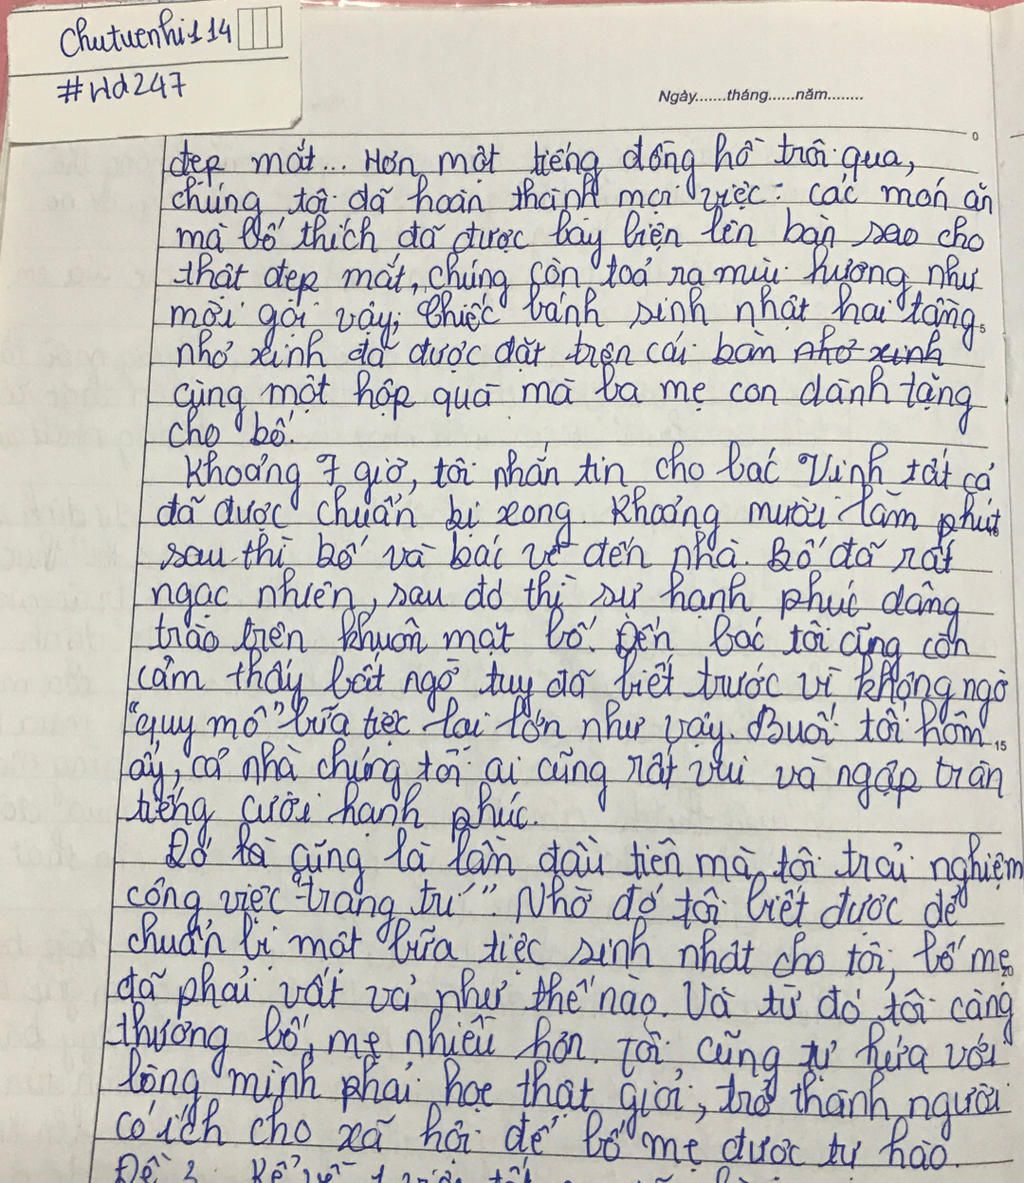 Chutuenhi114
#Hd247
Ngày.......tháng......năm........
0
đẹp mắt... Hơn một tiếng đồng hồ trôi qua,
chúng tôi đã hoàn thành mọi việc: các món ăn
mà bố thích đã được bày biện lên bàn sao cho
thật đẹp mắt, chúng còn toả ra mùi hương như
mời gọi vậy; chiếc bánh sinh nhật hai tầng 5
nhỏ xinh đã được đặt trên cái bàn nhỏ xinh
cùng một hộp quà mà ba mẹ con dành tặng
cho bố.
Khoảng 7 giờ, tôi nhắn tin cho bác Vinh tất cả
đã được chuẩn bị xong. Khoảng mười lăm phút 10
sau thì bố và bác về đến nhà. Bố đã rất
ngạc nhiên, sau đó thì sự hạnh phúc dâng
trào trên khuôn mặt bố. Đến bác tôi cũng còn
cảm thấy bất ngờ tuy đã biết trước vì không ngờ
"quy mô" bữa tiệc lại lớn như vậy. Buổi tối hôm 15
ấy, cả nhà chúng tôi ai cũng rất vui và ngập tràn
tiếng cười hạnh phúc.
Đó là cũng là lần đầu tiên mà tôi trải nghiệm
công việc "trang trí". Nhờ đó tôi biết được để
chuẩn bị một bữa tiệc sinh nhật cho tôi, bố mẹ 20
đã phải vất vả như thế nào. Và từ đó tôi càng
thương bố mẹ nhiều hơn. Tôi cũng tự hứa với
lòng mình phải học thật giỏi, trở thành người
có ích cho xã hội để bố mẹ được tự hào.
Đề 3: Kể về 1